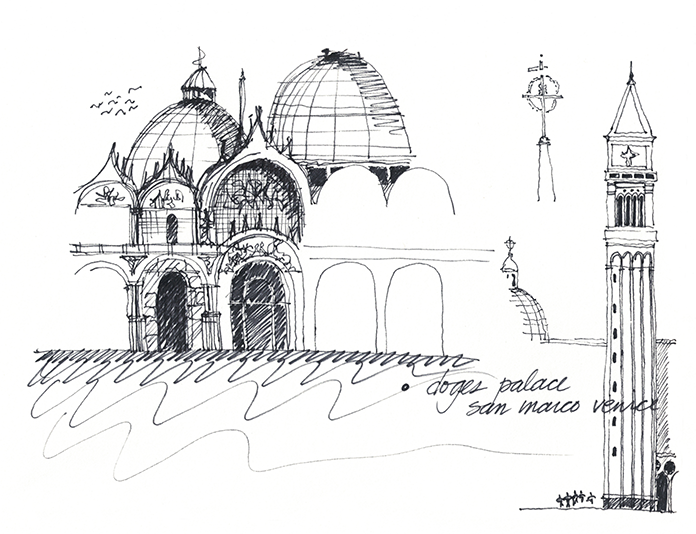 doges palace
san marco venice